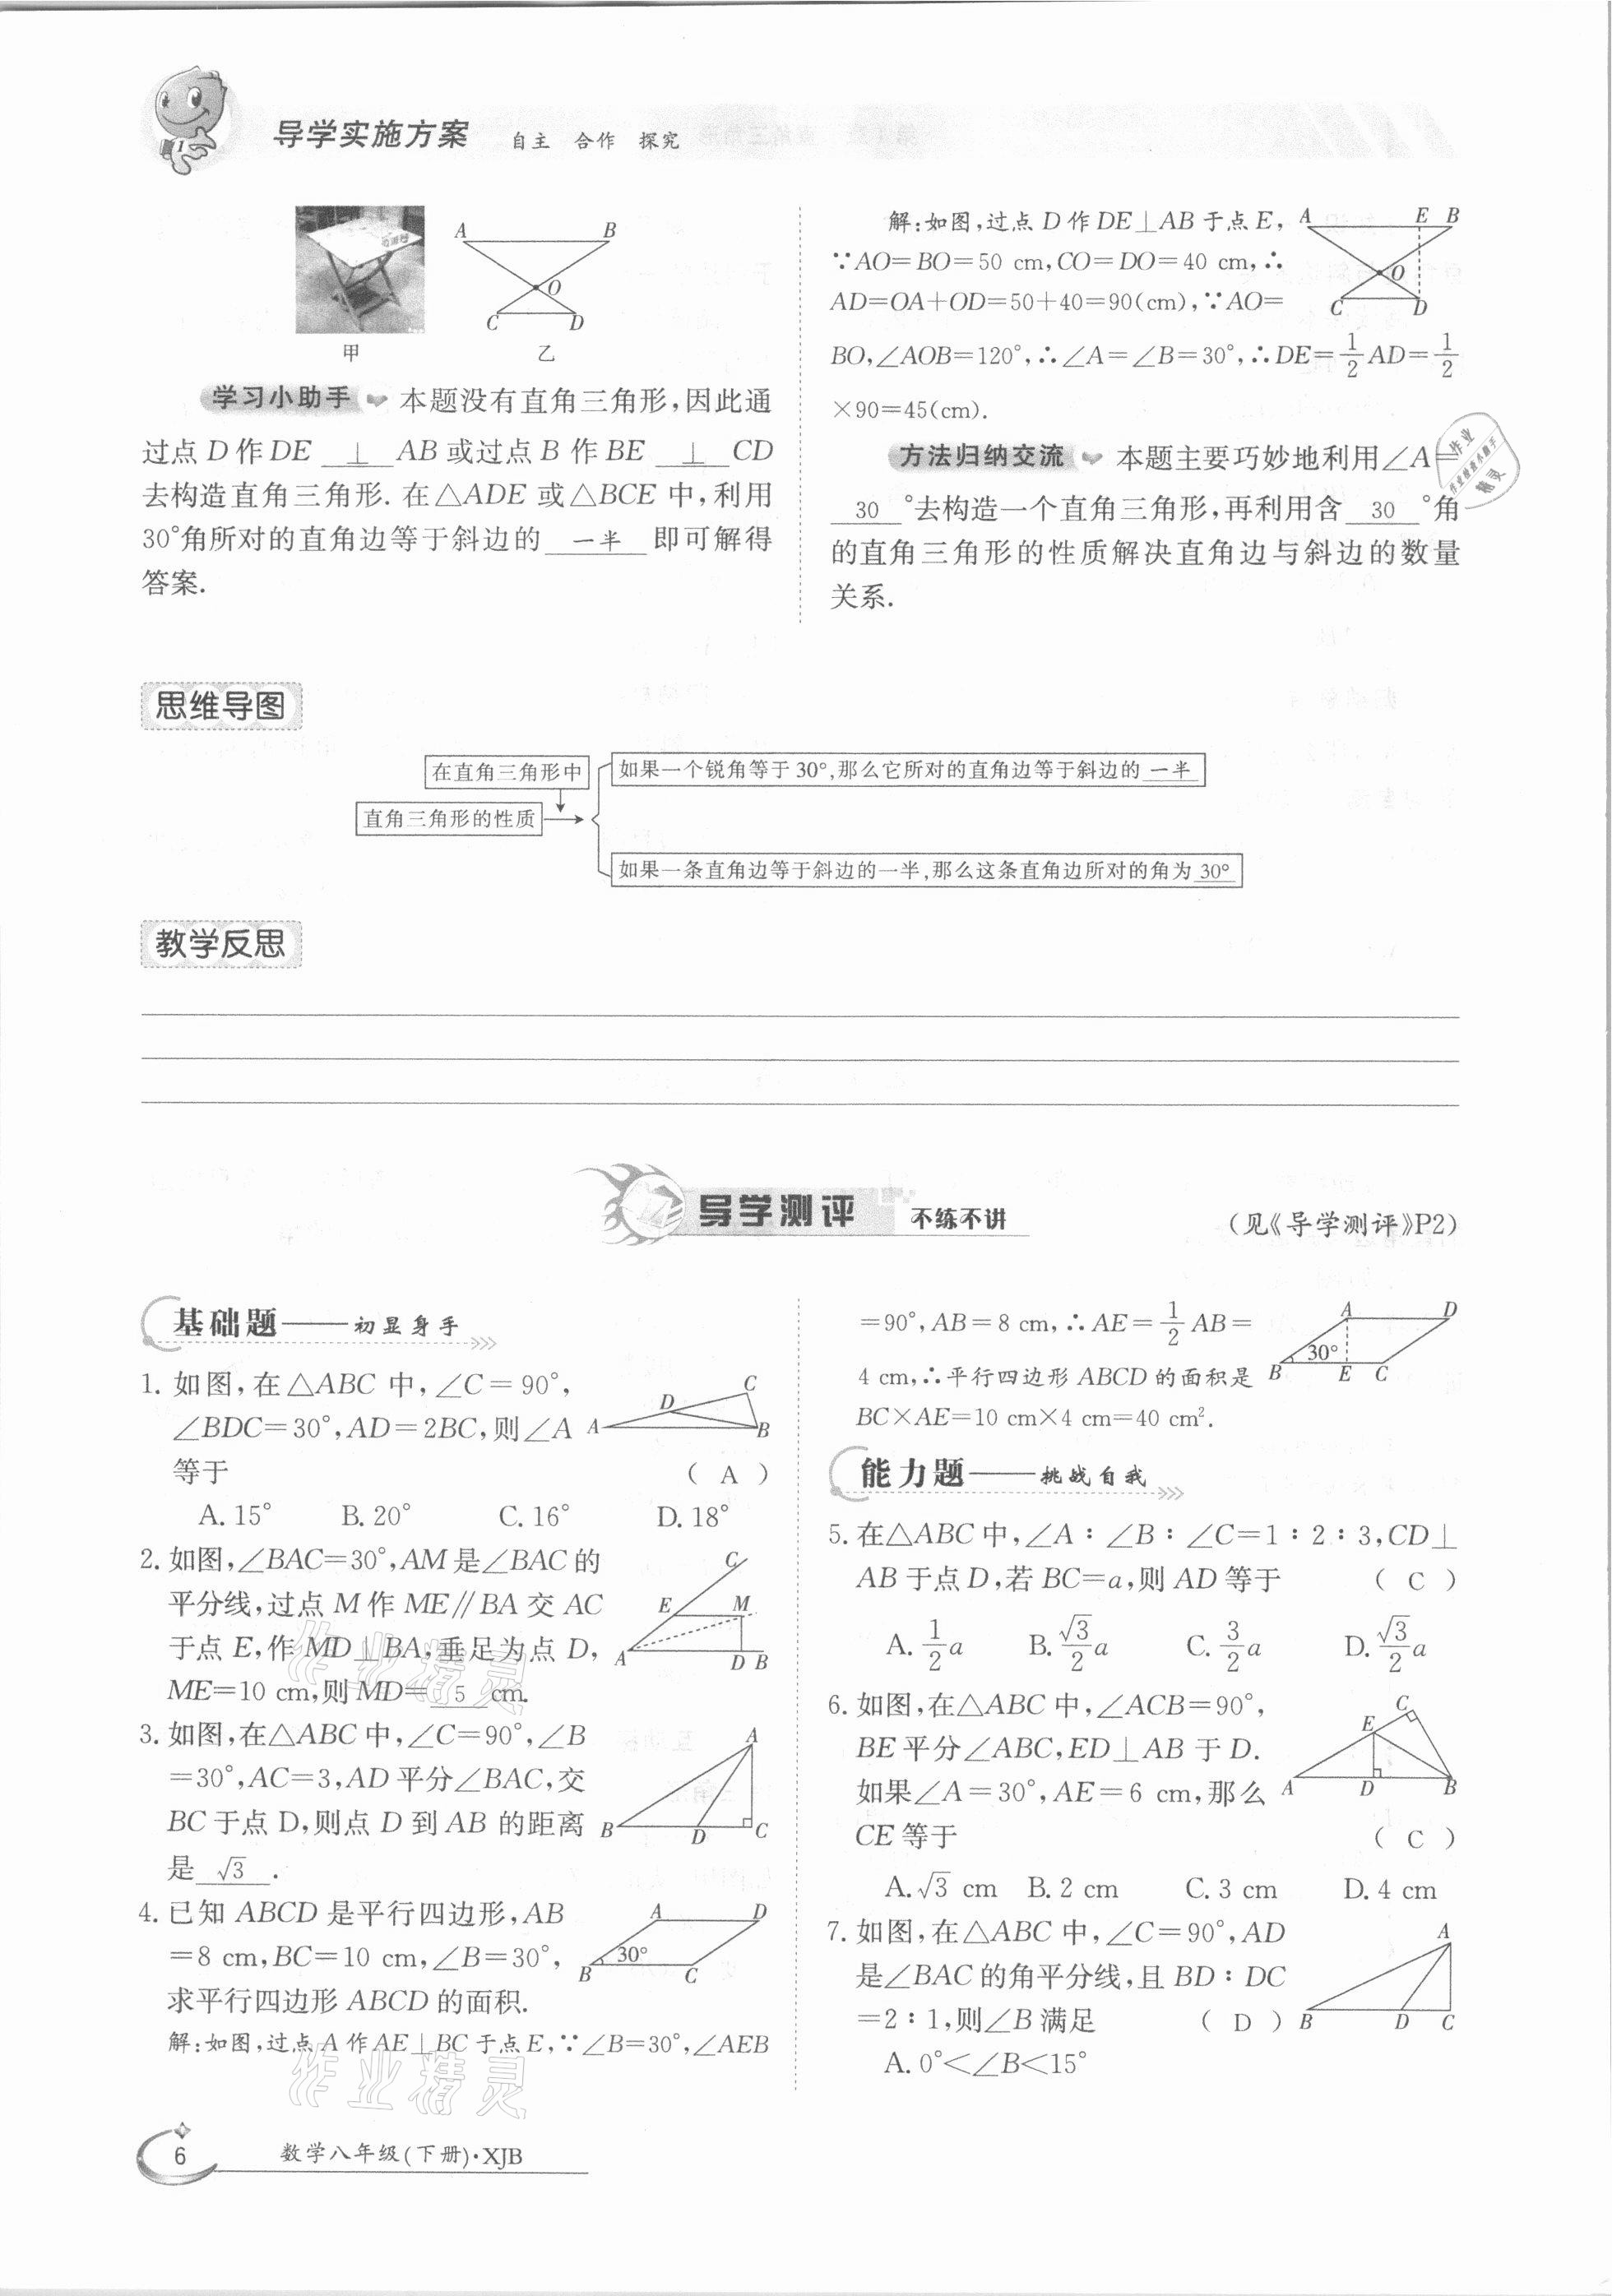 导学实施方案 自主 合作 探究
A B
O
C D
甲 乙
学习小助手 本题没有直角三角形,因此通
过点 D 作 DE ⊥ AB 或过点 B 作 BE ⊥ CD
去构造直角三角形. 在△ADE 或△BCE 中,利用
30°角所对的直角边等于斜边的 一半 即可解得
答案.
解:如图,过点 D 作 DE⊥AB 于点 E,
∵AO=BO=50 cm,CO=DO=40 cm,∴
AD=OA+OD=50+40=90(cm),∵AO=
BO,∠AOB=120°,∴∠A=∠B=30°,∴DE=1/2 AD=1/2
×90=45(cm).
A E B
O
C D
方法归纳交流 本题主要巧妙地利用∠A=
30 °去构造一个直角三角形,再利用含 30 °角
的直角三角形的性质解决直角边与斜边的数量
关系.
作业
作业精灵小助手
精灵
思维导图
在直角三角形中
直角三角形的性质
如果一个锐角等于 30°,那么它所对的直角边等于斜边的 一半
如果一条直角边等于斜边的一半,那么这条直角边所对的角为 30°
教学反思
导学测评 不练不讲 (见《导学测评》P2)
基础题——初显身手
1. 如图,在△ABC 中,∠C=90°,
∠BDC=30°,AD=2BC,则∠A
等于 ( A )
A. 15° B. 20° C. 16° D. 18°
A D C B
2. 如图,∠BAC=30°,AM 是∠BAC 的
平分线,过点 M 作 ME∥BA 交 AC
于点 E,作 MD⊥BA,垂足为点 D,
ME=10 cm,则 MD= 5 cm.
C
E M
A D B
3. 如图,在△ABC 中,∠C=90°,∠B
=30°,AC=3,AD 平分∠BAC,交
BC 于点 D,则点 D 到 AB 的距离
是 √3 .
A
B D C
4. 已知 ABCD 是平行四边形,AB
=8 cm,BC=10 cm,∠B=30°,
求平行四边形 ABCD 的面积.
A D
30°
B C
解:如图,过点 A 作 AE⊥BC 于点 E,∵∠B=30°,∠AEB
作业精灵
作业精灵
=90°,AB=8 cm,∴AE=1/2 AB=
4 cm,∴平行四边形 ABCD 的面积是
BC×AE=10 cm×4 cm=40 cm².
A D
30°
B E C
能力题——挑战自我
5. 在△ABC 中,∠A∶∠B∶∠C=1∶2∶3,CD⊥
AB 于点 D,若 BC=a,则 AD 等于 ( C )
A. 1/2 a B. √3/2 a C. 3/2 a D. √3/2 a
6. 如图,在△ABC 中,∠ACB=90°,
BE 平分∠ABC,ED⊥AB 于 D.
如果∠A=30°,AE=6 cm,那么
CE 等于 ( C )
A. √3 cm B. 2 cm C. 3 cm D. 4 cm
C
E
A D B
7. 如图,在△ABC 中,∠C=90°,AD
是∠BAC 的角平分线,且 BD∶DC
=2∶1,则∠B 满足 ( D )
A. 0°<∠B<15°
A
B D C
6 数学八年级(下册)·XJB